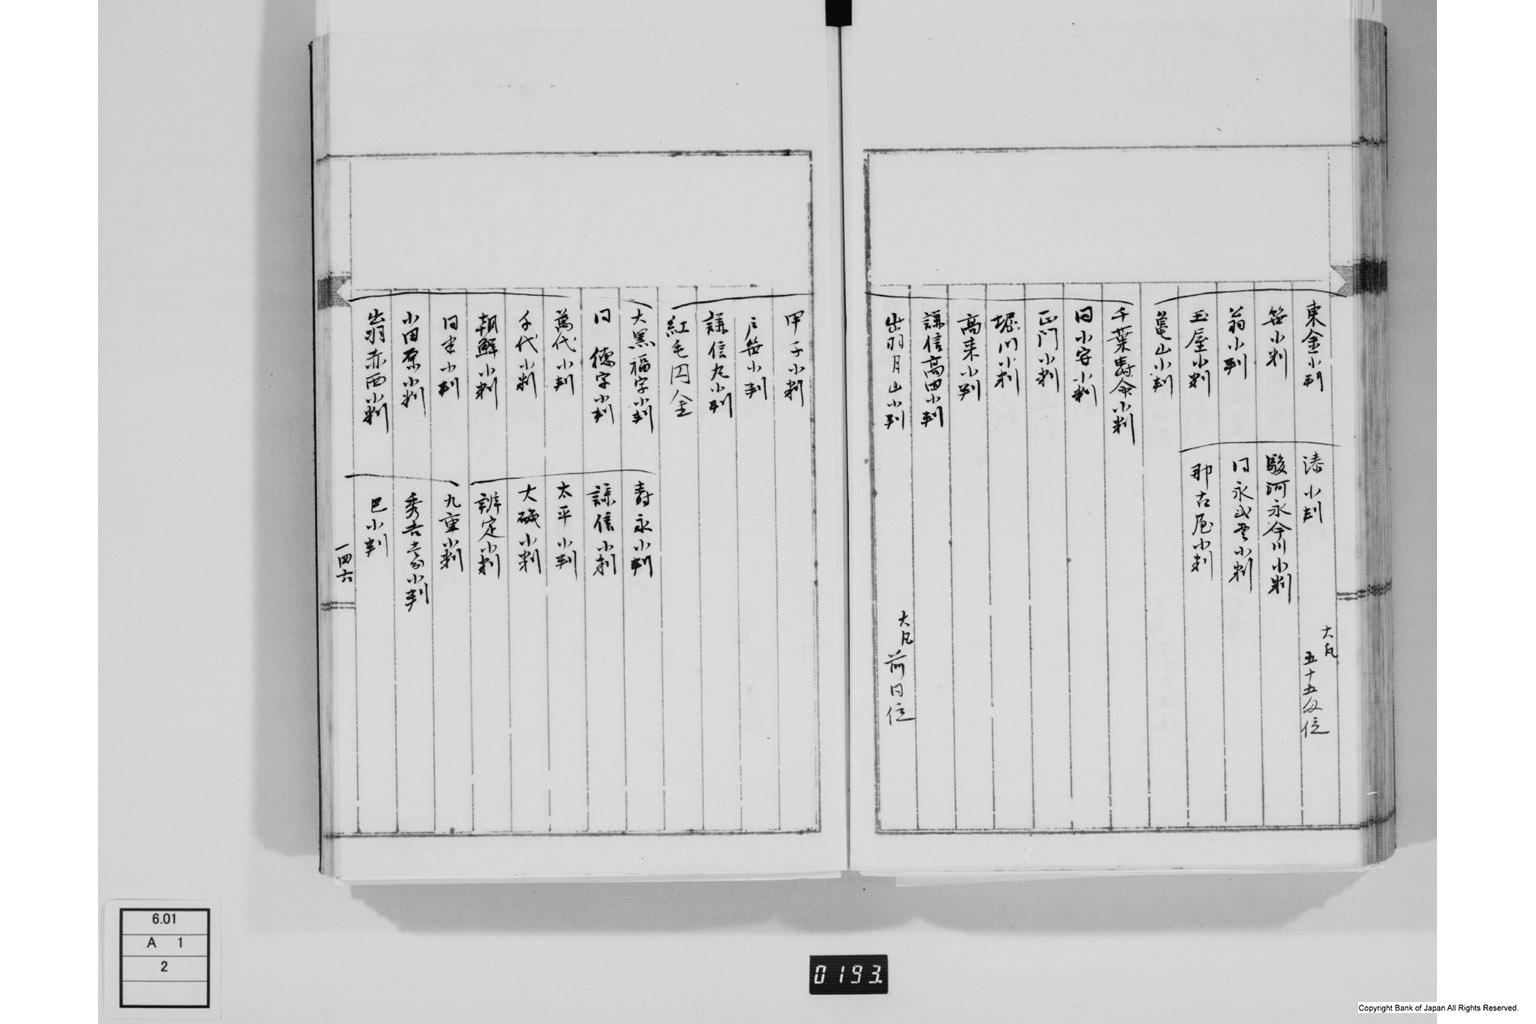 東金小判
笹小判
翁小判
玉屋小判
亀山小判
千葉寿命小判
同小字小判
正門小判
堀川小判
高来小判
謙信高田小判
出羽月山小判
湊小判
駿河永今川小判
那古屋小判
大凡
五十五匁位
大凡
前同位
甲子小判
戸笹小判
謙信丸小判
紅毛円金
大黒福字小判
同徳字小判
萬代小判
千代小判
朝鮮小判
小田原小判
出羽赤西小判
寿永小判
謙信小判
太平小判
大磯小判
辨定小判
九重小判
巴小判
一四六
6.01
A 1
2
0193.
Copyright Bank of Japan All Rights Reserved.